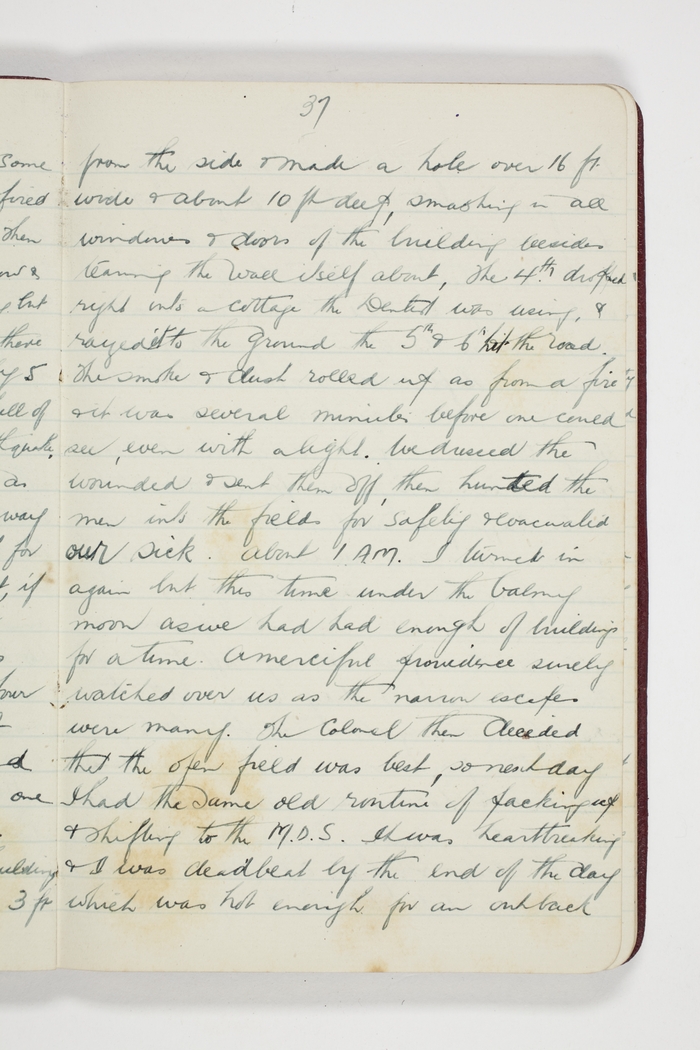 37
from the side & made a hole over 16 ft
wide & about 10 ft deep, smashing in all
windows & doors of the building besides
tearing the wall itself about, The 4th dropped
right onto a cottage the Dentist was using, &
razed it to the ground the 5th & 6th hit the road.
The smoke & dust rolled up as from a fire
& it was several minutes before one could
see, even with a light. We dressed the
wounded & sent them off, then hunted the
men into the fields for safety & evacuated
our sick. about 1 AM. I turned in
again but this time under the balmy
moon as we had had enough of buildings
for a time. A merciful providence surely
watched over us as the narrow escapes
were many. The Colonel then decided
that the open field was best, so next day
I had the same old routine of packing up
& shifting to the M.D.S. It was heartbreaking
& I was deadbeat by the end of the day
which was hot enough for an outback
some
fired
then
& 
but
there
by 5
all of
as
way
for
if
hour
d
one
building
3 ft